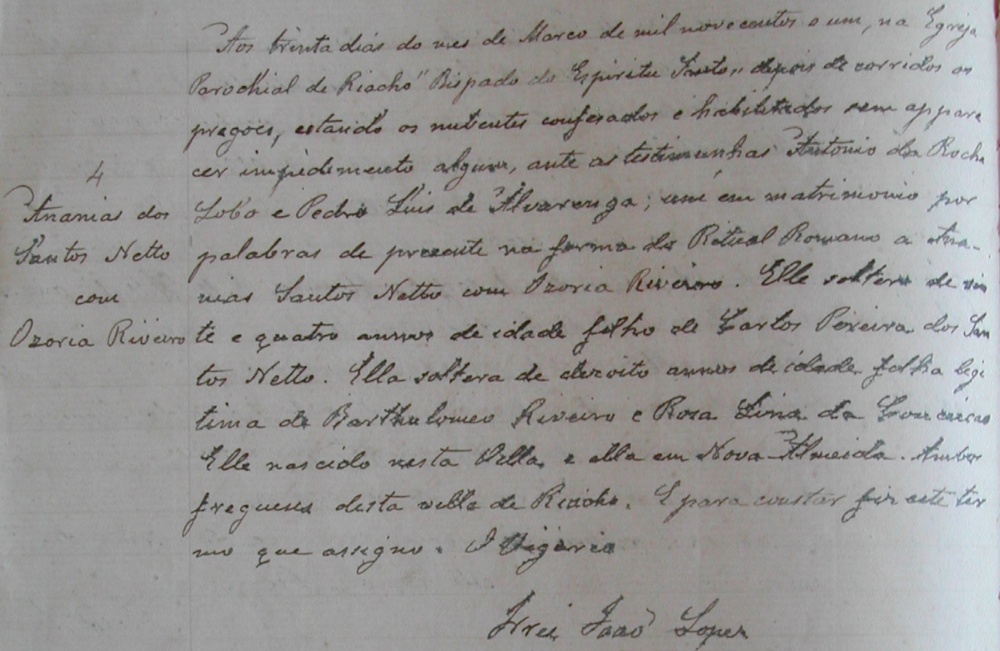 Aos trinta dias do mes de Marco de mil nove centos e um, na Egreja
Parochial de Riacho" Bispado do Espiritu Santo,, depois de corridos os
pregoes, estando os nutentes confesados e habilitados sem appare
cer impedimento algum, ante as testimunhas Antonio da Rocha
Lobo e Pedro Luis de Alvarenga; uni em matrimonio por
palabras de presente na forma do Ritual Romano a Ana-
nias Santos Netto com Ozoria Riveiro. Elle soltero de vin
te e quatro annos de idade filho de Carlos Pereira dos San
tos Netto. Ella soltera de dezoito annos de idade filha legi
tima de Bartholomeo Riveiro e Rosa Lina da Conceicao
Elle nascido nesta Villa, e ella em Nova-Almeida. Ambos
fregueses desta villa de Riacho. E para constar fiz este ter
mo que assigno. O Vigario
Frei Joaõ Lopez
4
Ananias dos
Santos Netto
com
Ozoria Riveiro